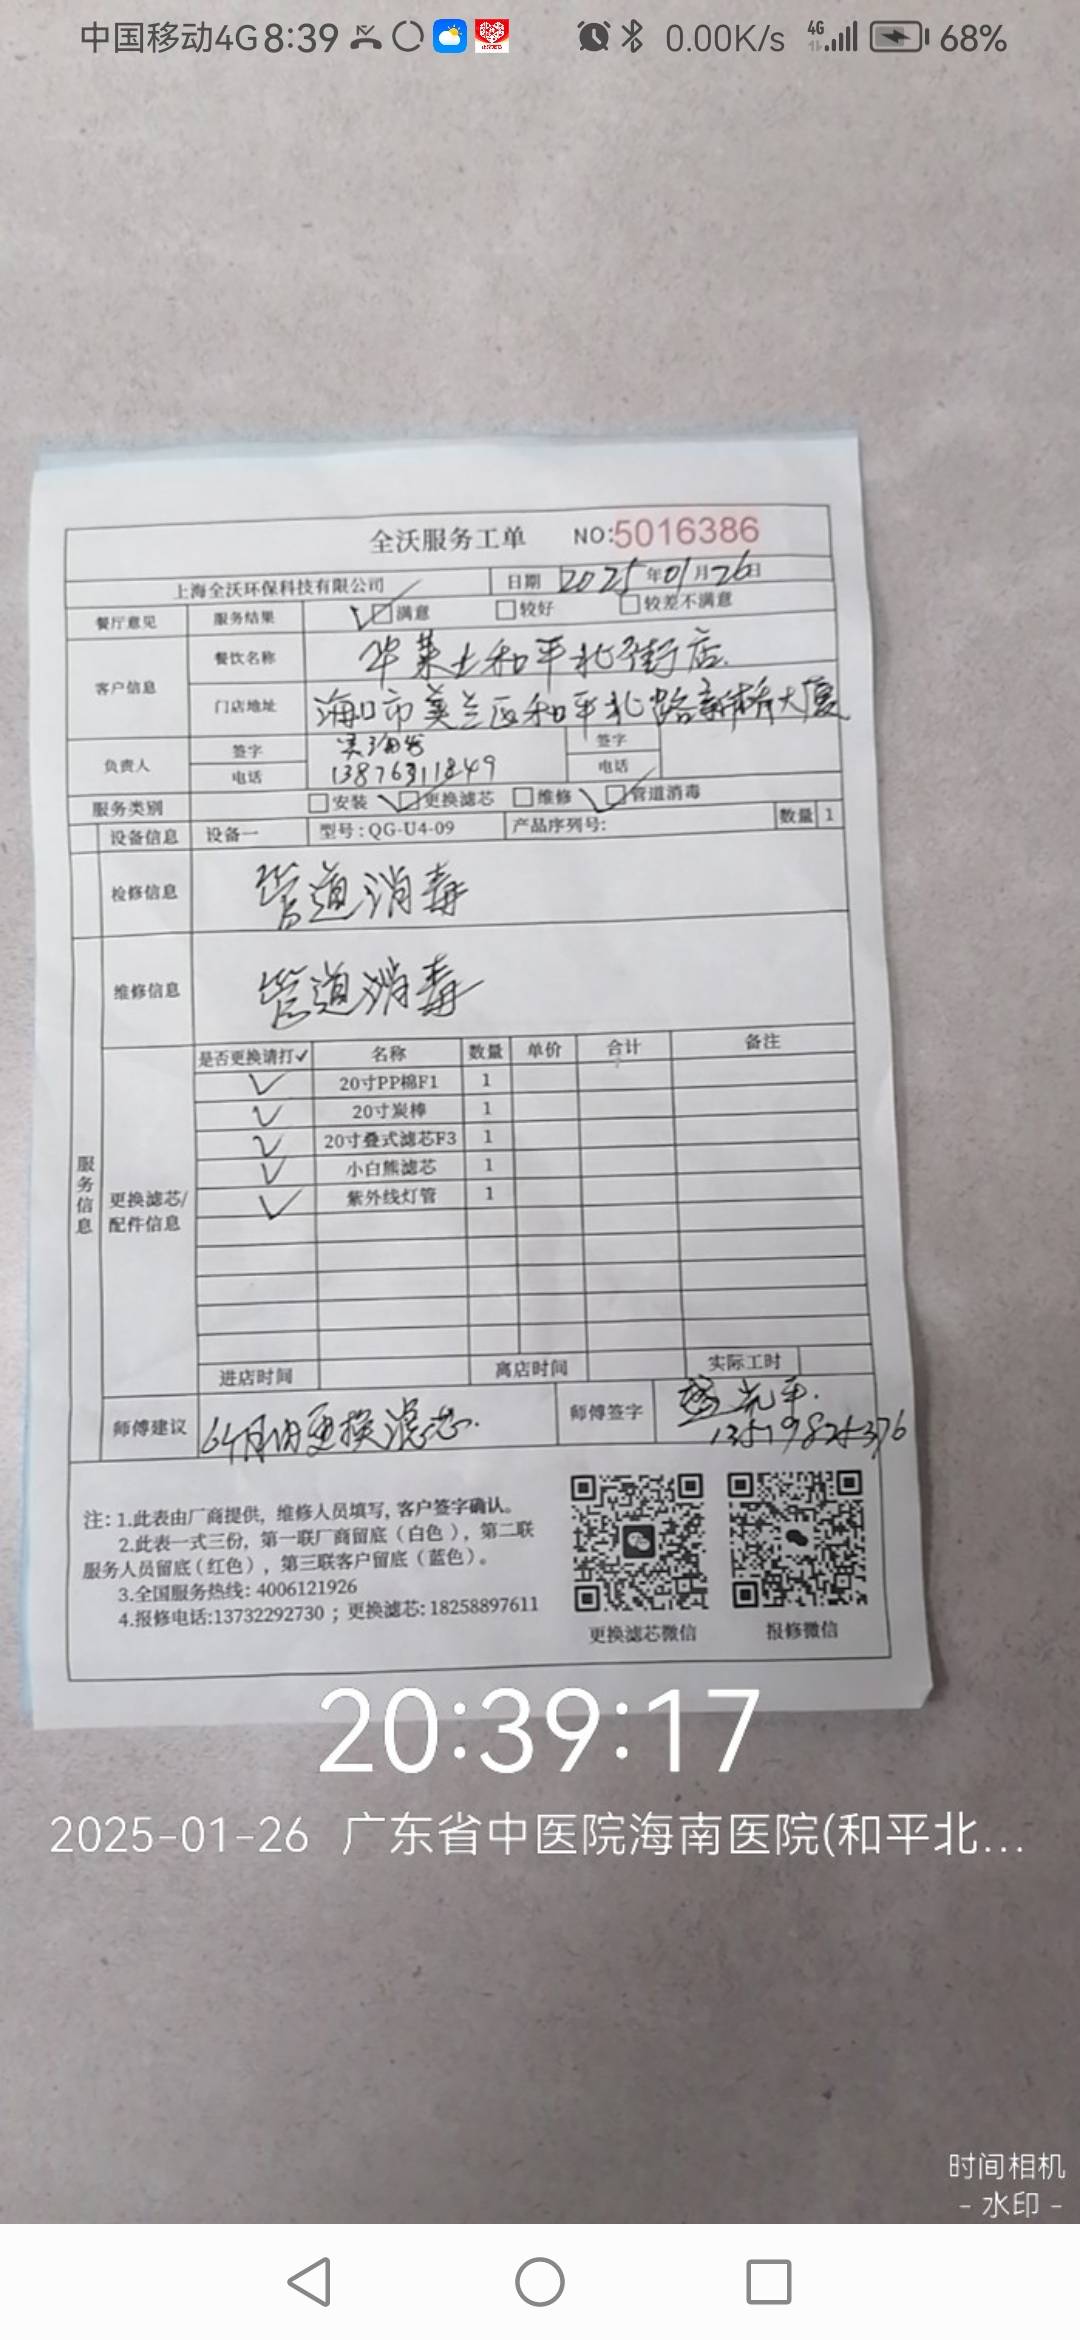 中国移动4G 8:39 0.00K/s 4G 68%
全沃服务工单 NO:5016386
上海全沃环保科技有限公司 日期 2025年01月26日
餐厅意见 服务结果 满意 较好 较差不满意
客户信息 餐饮名称 华莱士和平北街店
门店地址 海口市美兰区和平北路新桥大厦
负责人 签字 签字
电话 13876311849 电话
服务类别 安装 更换滤芯 维修 管道消毒
设备信息 设备一 型号:QG-U4-09 产品序列号: 数量 1
检修信息 管道消毒
维修信息 管道消毒
服务信息
更换滤芯/配件信息
是否更换请打✓ 名称 数量 单价 合计 备注
✓ 20寸PP棉F1 1
✓ 20寸炭棒 1
✓ 20寸叠式滤芯F3 1
✓ 小白熊滤芯 1
✓ 紫外线灯管 1
进店时间 离店时间 实际工时
师傅建议 6个月内更换滤芯. 师傅签字 盛光平.
13519825376
注: 1.此表由厂商提供, 维修人员填写, 客户签字确认。
2.此表一式三份, 第一联厂商留底(白色), 第二联
服务人员留底(红色), 第三联客户留底(蓝色)。
3.全国服务热线: 4006121926
4.报修电话:13732292730; 更换滤芯: 18258897611
更换滤芯微信 报修微信
20:39:17
2025-01-26 广东省中医院海南医院(和平北...
时间相机
- 水印 -